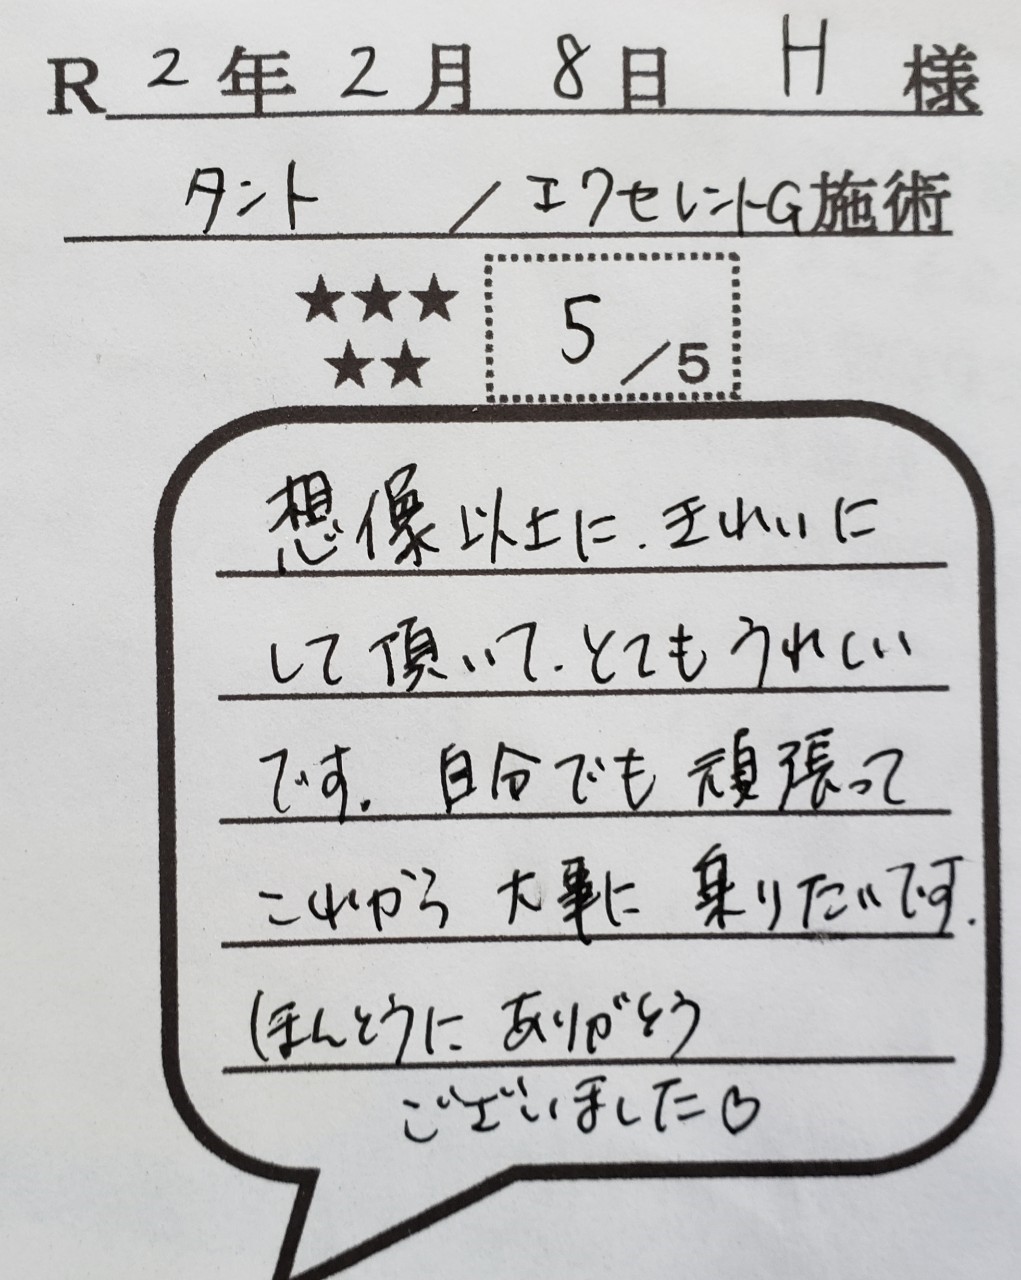 R 2年 2月 8日 H 様
タント / エクセレントG施術
★★★
★★
5/5
想像以上に、きれいに
して頂いて、とてもうれしい
です。自分でも頑張って
これから大事に乗りたいです。
ほんとうにありがとう
ございました♡